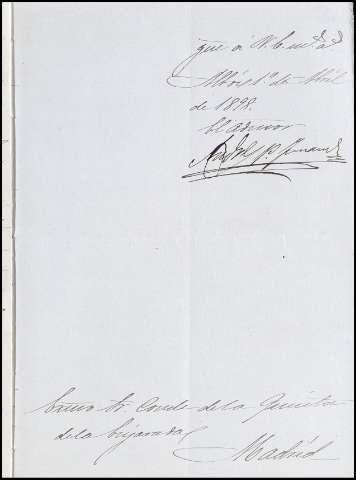 que á V. E. md. ad
Albóx 1º de Abril
de 1898.
El asesor
Exmo Sr. Conde de la Quinta
de la Enjarada
Madrid